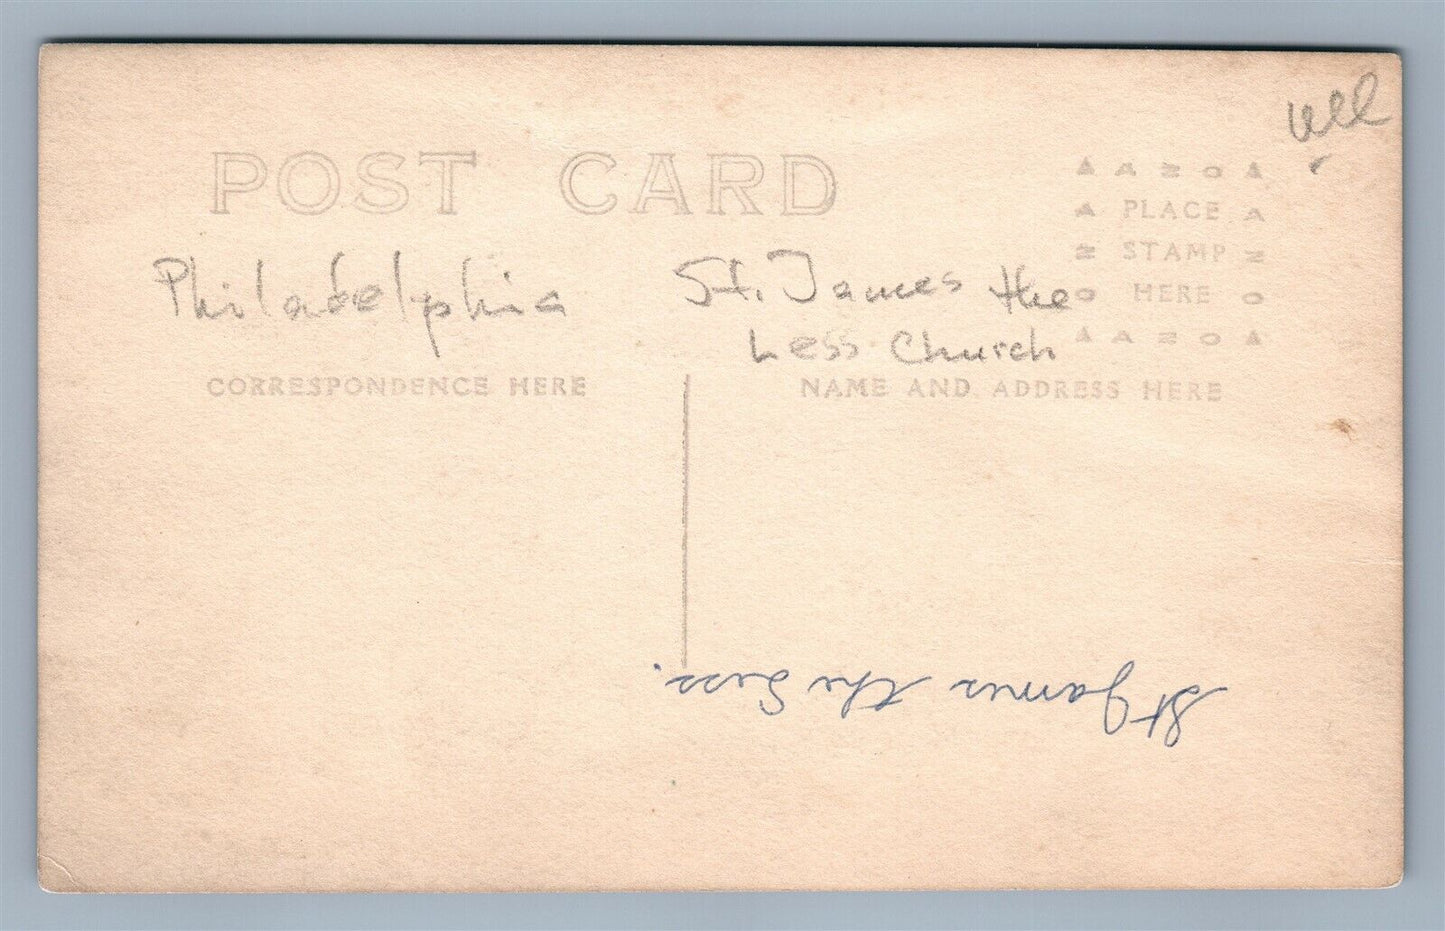 POST CARD
AZO
PLACE
STAMP
HERE
AZO
Philadelphia
St. James the
Less Church
CORRESPONDENCE HERE
NAME AND ADDRESS HERE
St James the Less.